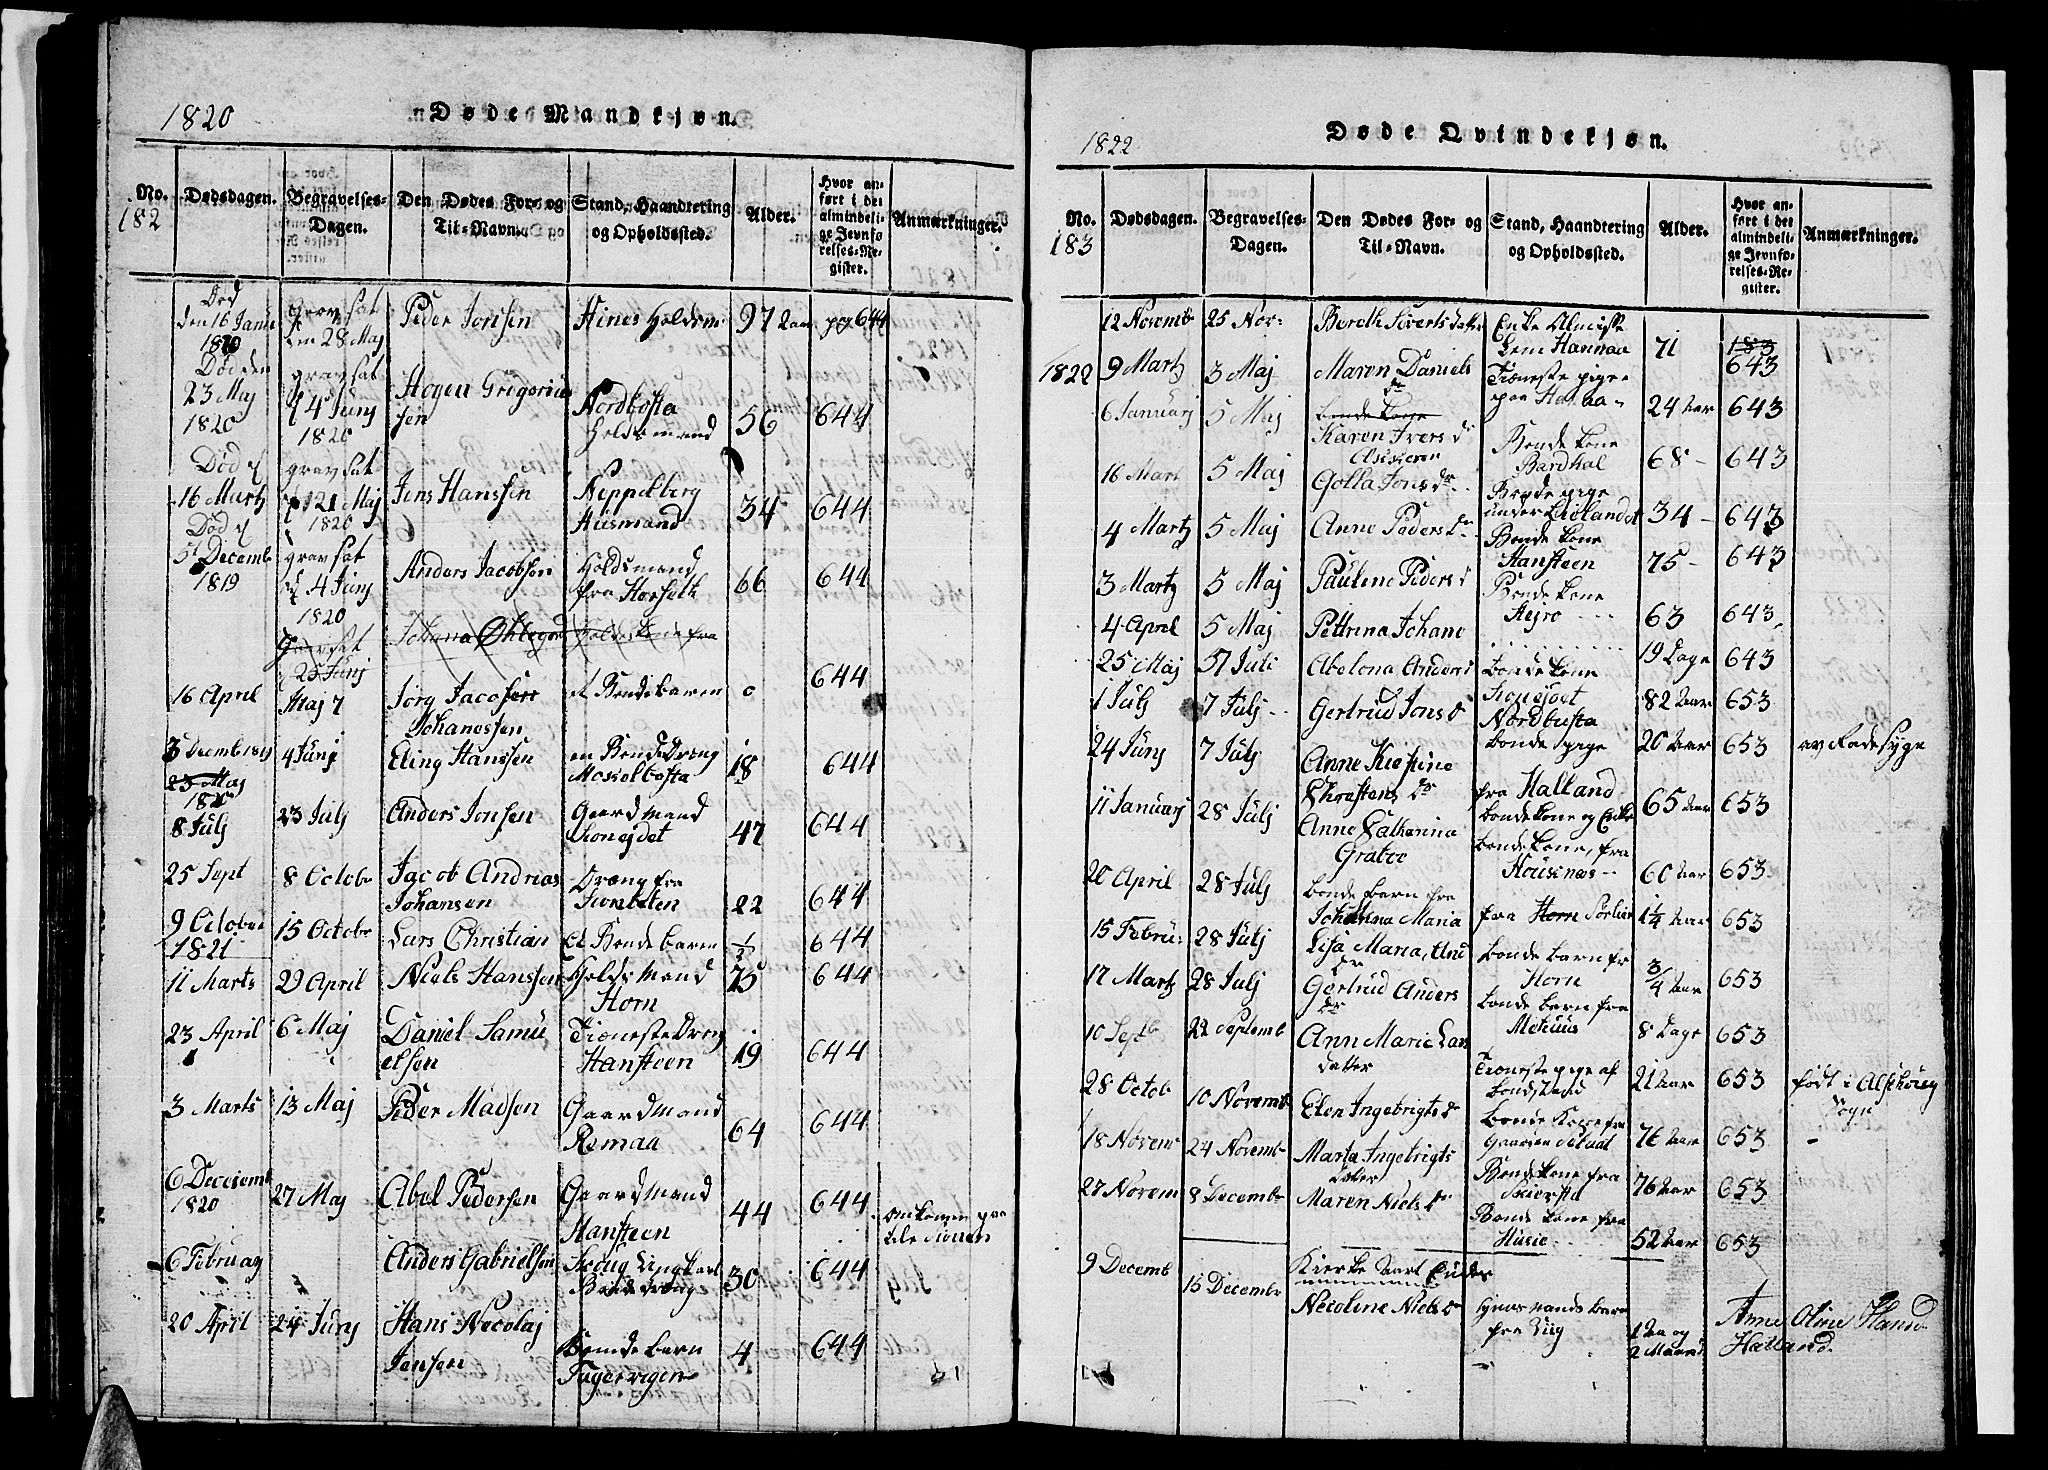 1820
Døde Mandkjøn.
No.
182
Dødsdagen.
Begravelses-
Dagen.
Den Dødes For- og
Til-Navn.
Stand, Haandtering
og Opholdssted.
Alder.
Hvor an-
ført i det
almindeli-
ge Jevnfø
relses-Re-
gister.
Anmærkninger.
Død
den 16 Janu
gravsat
den 28 Maj
Peder Jonsen
Hines
97 Aar
pag 644
Død den
23 Maj
1820
gravsat
4 Junj
1820
Hogen Gregorius
sen
Nordbosta
Holdsmand
56
644
Død
16 Martz
gravsat
21 Maj
1820
Jens Hanssen
Neppelberg
Husmand
34
644
Død
Decemb
1819
gravsat
4 Junj
1820
Anders Jacobsen
Holdsmand
fra Horseth
66
644
Gravsat
25 Junj
Johana
16 April
Maj 7
Jørg Jacobsen
Johanessen
et Bondebaren
0
644
3 Decemb 1819
23 Maj
4 Junj
Eling Hanssen
en Bonde Dreng
Mosselbosta
18
644
8 Julj
23 Julj
Anders Jonsen
Gaardmand
47
644
25 Sept
8 Octobr
Jacob Andrias
Johansen
Dreng fra
22
644
9 October
15 Octobr
Lars Christian
Et Bonde baren
1/2
644
1821
11 Marts
29 April
Niels Hanssen
Holdsmand
Horn
75
644
23 April
6 Maj
Daniel Samu
elsen
Tieneste Dreng
Hansteen
19
644
3 Marts
13 Maj
Peder Madsen
Gaardmand
Remaa
64
644
6 Decisemb
1820
27 Maj
Abel Pedersen
Gaardmand
Hansteen
44
644
omkomen paa
6 Februarj
Anders Gabrielsen
30
644
20 April
24 Junj
Hans Necolaj
Jensen
Bondebarn
Fagervigen
4
644
1822
Døde Qvindekjøn.
No.
183
Dødsdagen.
Begravelses-
Dagen.
Den Dødes For- og
Til-Navn.
Stand, Haandtering
og Opholdssted.
Alder.
Hvor an-
ført i det
almindeli-
ge Jevnfø-
relses-Re-
gister.
Anmærkninger.
12 Novemb
25 Nov
Bereth Siverts datter
Enke Almisse
Lem Hannaa
71
183
643
1822
9 Martz
3 Maj
Maren Daniels
dr
Tieneste pige
paa Hanaa
24 Aar
643
6 Januarj
5 Maj
bonde kone
Karen Ivers dr
Bonde kone
Bardkal
68
643
16 Mart
5 Maj
Golla Jons dr
Bonde pige
under
34
643
4 Martz
5 Maj
Anne Peders dr
Bonde kone
Hansteen
75
643
3 Martz
5 Maj
Pauline Peders d
Bonde kone
Hejro
63
643
4 April
5 Maj
Pettrina Johane
19 Dage
643
25 Maj
Juli
Abelona Anders d
bonde kone
82 Aar
653
1 Julj
7 Julj
Gertrud Jons d
Nordbusta
bonde pige
20 Aar
653
av Radesyge
24 Junj
7 Julj
Anne Kiestine
Chrestens dr
fra Halland
bondekone og Enke
65 Aar
653
11 Januarj
28 Julj
Anne Catharina
Graboe
bondekone, fra
Housenæs
60 Aar
653
20 April
28 Julj
bonde barn fra
Johanna Maria
fra Horn Sørlie
1 1/4 Aar
653
15 Febru
28 Julj
Lisa Maria, And
dr
bonde barn fr
Horn
3/4 Aar
653
17 Martz
28 Julj
Gertrud Anders
dr
bonde barn fra
8 Dage
653
10 Septb
22 Septemb
Ann Marie Lars
datter
Tieneste pige af
bondstand
21 Aar
653
født i Alstahoug
Sogn
28 Octob
10 Novemb
Elen Ingebrigts dr
bonde Kone fra
76 Aar
653
18 Novem
24 Novemb
Marta Ingebrigts
datter
Bonde kone fra
76 Aar
653
27 Novem
8 Decembr
Maren Niels dr
Bonde kone fra
Husie
52 Aar
653
Kierke Aart Endes
9 Decemb
15 Decembr
Necoline Niels dr
1 Aar og
2 Maaned
Anne Oline Hansd.
Halland.